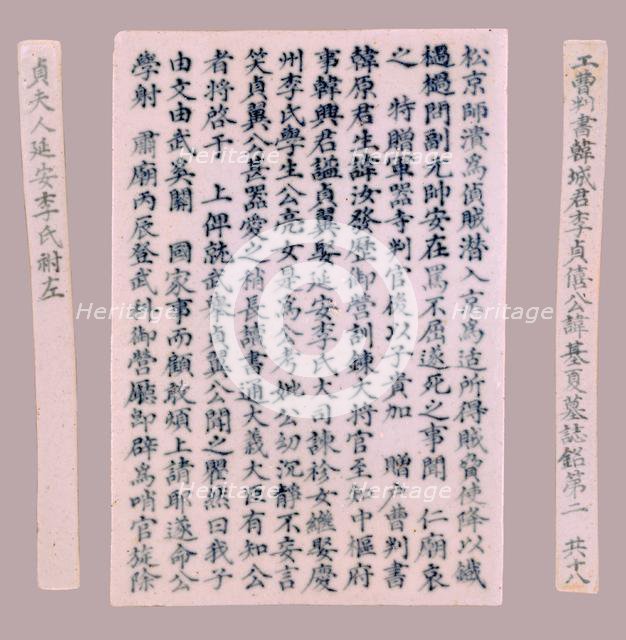 工曹判書韓城君李貞僖公諱基夏墓誌銘第二 共十八
松京師潰爲偵賊潜入京爲适所得賊脅使降以鐵
檛檛問副元帥安在罵不屈遂死之事聞 仁廟哀
之 特贈軍器寺判官後以子貴加 贈戶曹判書
韓原君生諱汝發歷御營訓鍊大將官至知中樞府
事韓興君諡貞翼娶延安李氏大司諫袗女繼娶慶
州李氏學生公亮女是爲公考妣公幼沉靜不妄言
笑貞翼公甚器愛之稍長讀書通大義大臣有知公
者將啓于 上俾就武擧貞翼公聞之愀然曰我子
由文由武奚關 國家事而顧敢煩上請耶遂命公
學射 肅廟丙辰登武科御營廳卽辟爲哨官旋除
貞夫人延安李氏祔左
Heritage
Heritage
Heritage
Heritage
Heritage
Heritage
Heritage
Heritage